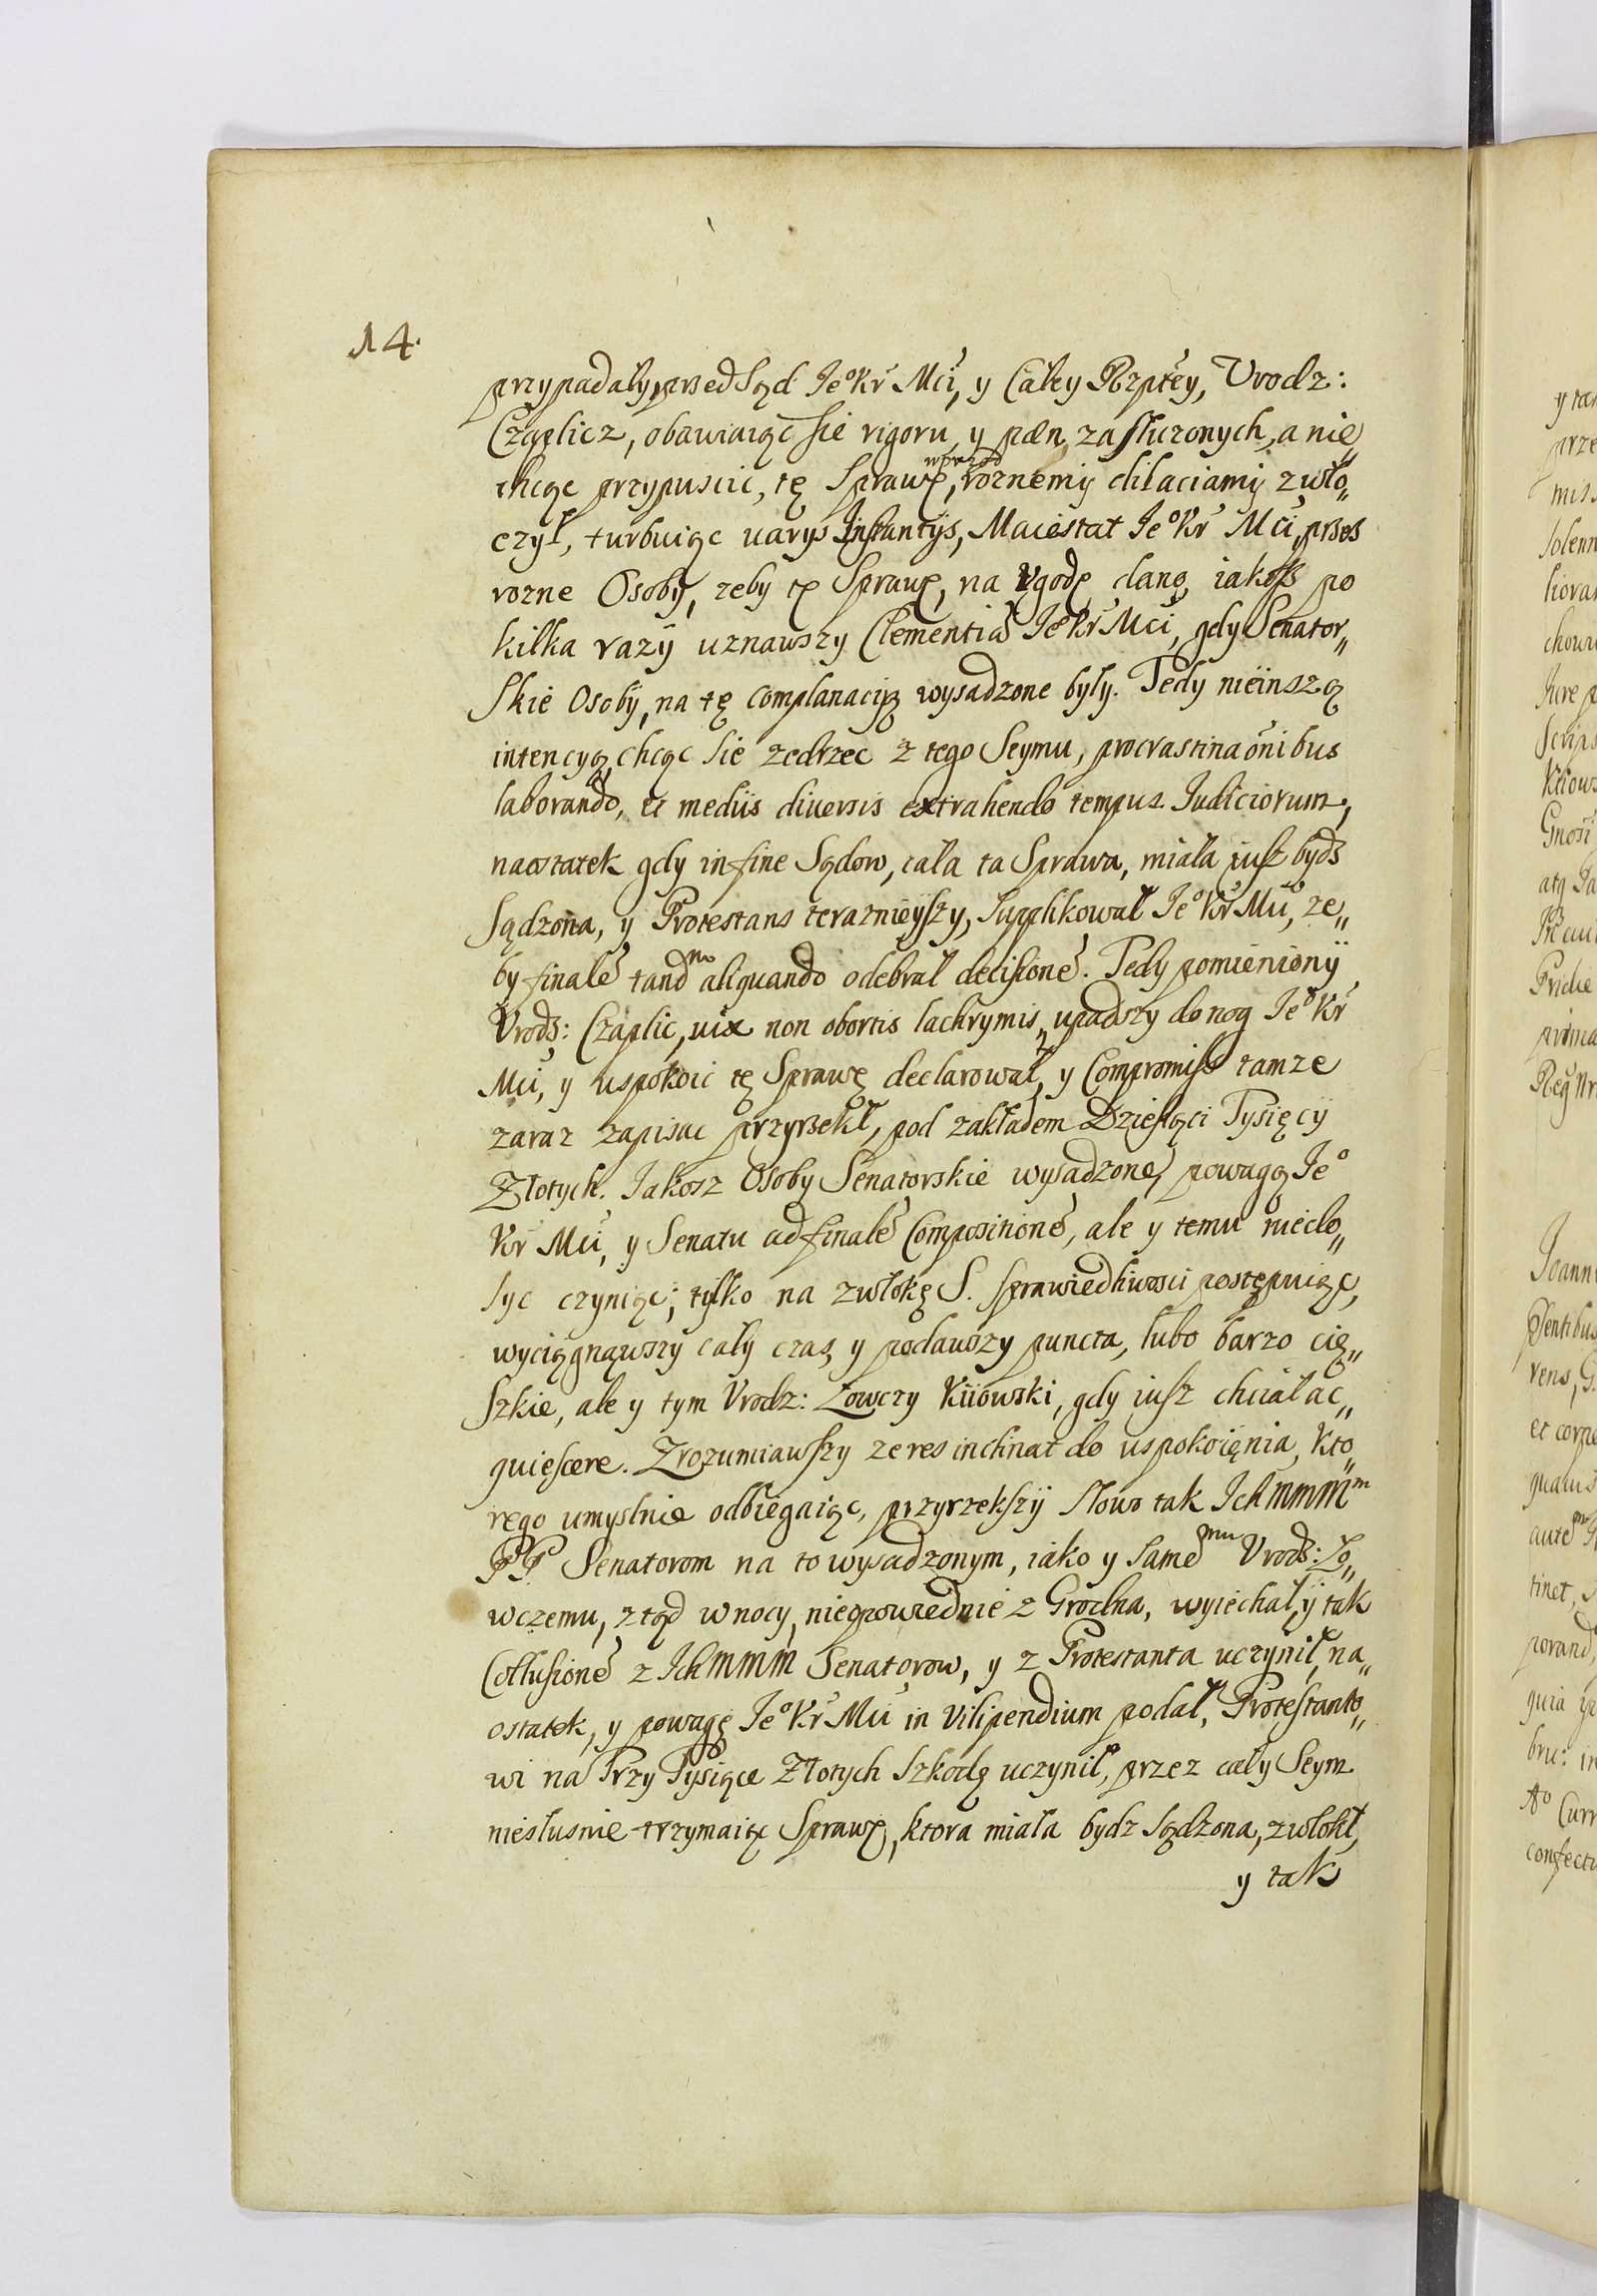 14.
przypadały, przed Sąd Jeo Kr Mći, y Całey Rzptey, Urodz:
Czaplicz, obawiaiąc sie rigoru y pæn zasłuzonych, a nie„
chcąc przypuscic, tę Sprawę, wprzod roznemi dilaciami zwło„
czył, turbuiąc varys Instantys, Maiestat Jeo Kr Mći, przes
rozne Osoby, zeby tę Sprawę, na Ugodę daną, iakosz po
kilka razy uznawszy Clementiã Jeo Kr Mći, gdy Senator„
skie Osoby, na tę complanacyą wysadzone były. Tedy nieinszą
intencyą, chcąc sie zedrzec z tego Seymu, procrastinaõnibus
laborando, et mediis diversis extrahendo tempus Judiciorum,
naostatek gdy in fine Sądow, cała ta Sprawa, miała iusz bydz
sądzona, y Protestans teraznieyszy, supplikował Jeo Kr Mći, ze„
by finalẽ tandmo aliquando odebrał decisionẽ. Tedy pomieniony
Urodz: Czaplic, vix non obortis lachrymis, upadszy do nog Jeo Kr
Mći, y uspokoic tę Sprawę declarował, y Compromiss tamze
zaraz zapisac przyrzekł, pod zakładem Dziesiąci Tysięcy
Złotych. Jakosz Osoby Senatorskie wysadzone, powagą Jeo
Kr Mći, y Senatu ad finalẽ Compositionẽ, ale y temu niedo„
syc czyniąc; tylko na zwłokę S. sprawiedliwosci postępuiąc,
wyciągnąwszy cały czas, y podawszy puncta, lubo barzo cię„
szkie, ale y tym Urodz: Łowczy Kiiowski, gdy iusz chciał ac„
quiescere. Zrozumiawszy ze res inclinat do uspokoięnia, kto„
rego umyslnie odbiegaiąc, przyrzekszy słowo tak Ich mmmm
PP Senatorom na to wysadzonym, iako y samemu Urodz: Ło„
wczemu, ztąd w nocy, nieopowiednie z Grodna, wyiechał, y tak
Collusionẽ z Ich mmm Senatorow, y z Protestanta uczynił, na„
ostatek, y powagę Jeo Kr Mći in vilipendium podał, Protestanto„
wi na Trzy Tysiące Złotych szkodę uczynił, przez cały Seym
niesłusnie trzymaiąc Sprawę, ktora miała bydz sądzona, zwłokł,
y tak